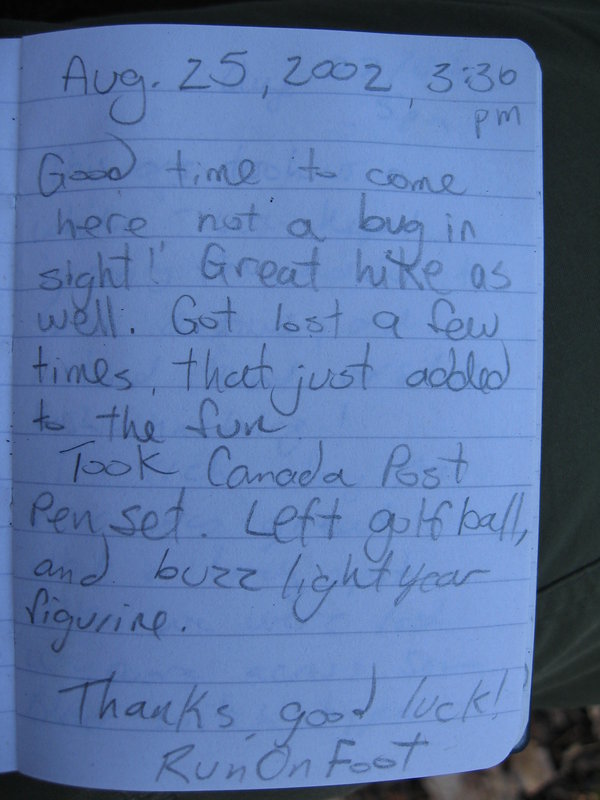 Aug. 25, 2002, 3:36
pm
Good time to come
here not a bug in
sight! Great hike as
well. Got lost a few
times, that just added
to the fun
Took Canada Post
Pen set. Left golf ball,
and buzz lightyear
figurine.
Thanks, good luck!
RunOnFoot